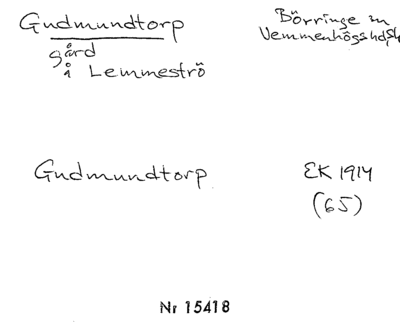 Gudmundtorp
gård
å Lemmeströ
Börringe sn
Vemmenhögs hd, Sk
Gudmundtorp
EK 1914
(65)
Nr 15418